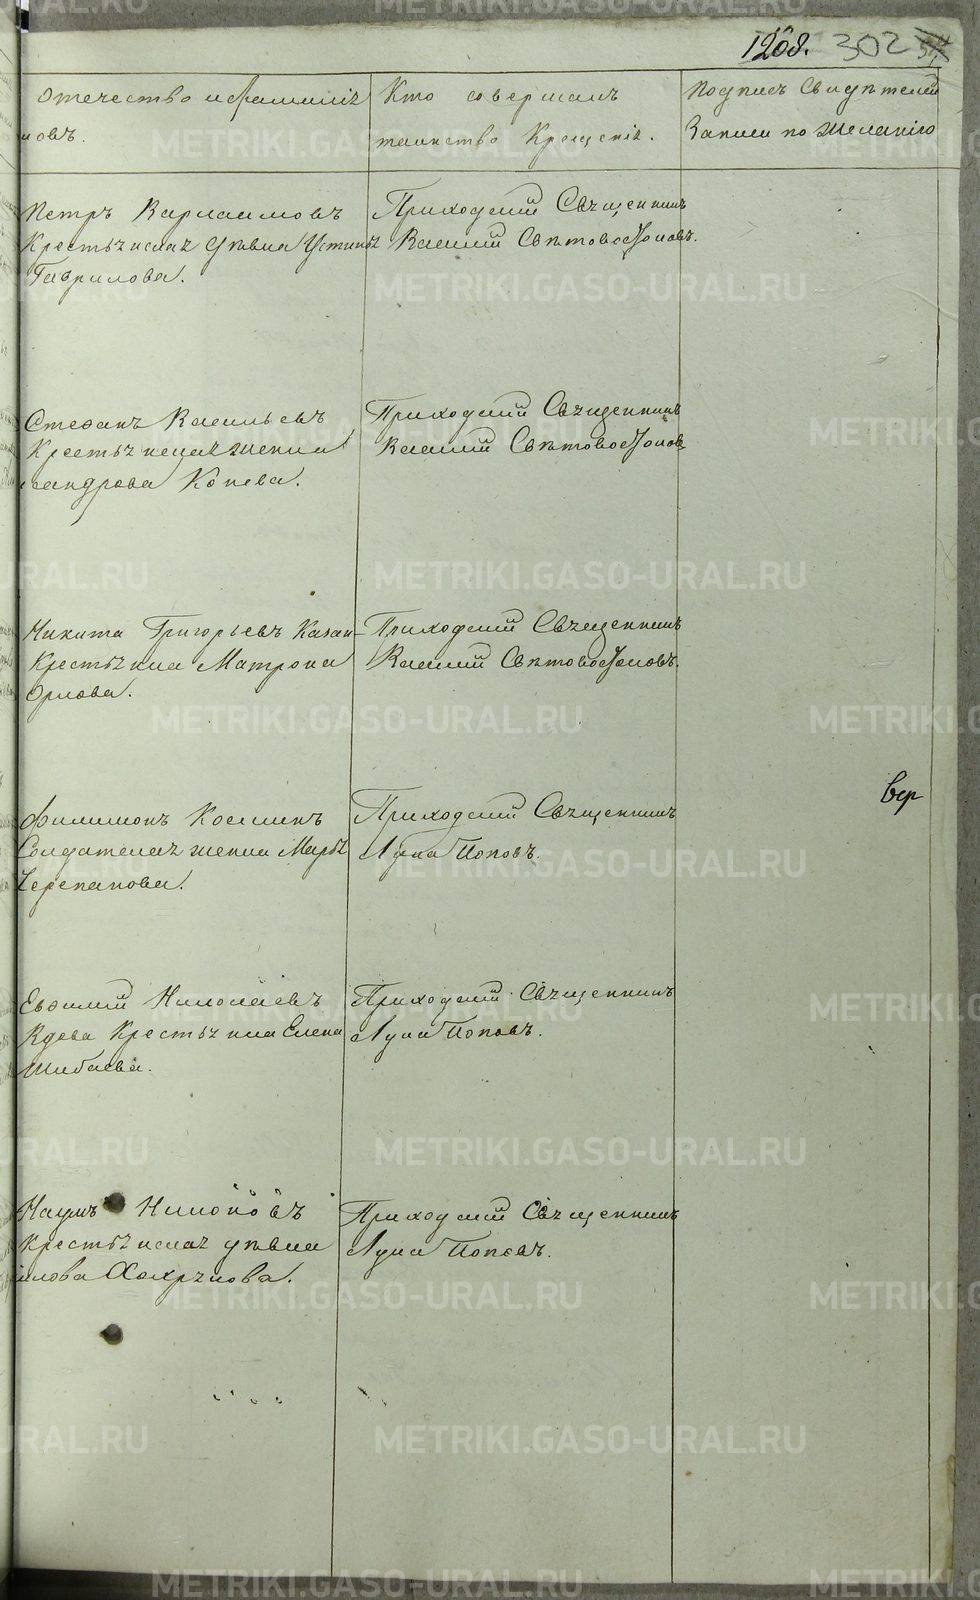 1208. 302
отечество и фамилія
новъ.
Кто совершалъ
таинство Крещенія.
Подпись Свидѣтелей
Записи по желанію
Петръ Варлаамовъ
Крестьянская дѣвка Устинья
Гаврилова.
Приходскій Священникъ
Василій Свѣтовостоковъ.
Стефанъ Васильевъ
Крестьянская женка
сандрова Конева.
Приходскій Священникъ
Василій Свѣтовостоковъ
Никита Григорьевъ Казан-
Крестьянка Матрона
Орлова.
Приходскій Священникъ
Василій Свѣтовостоковъ.
Филимонъ Косминъ
Солдатская женка Марья
Черепанова.
Приходскій Священникъ
Лука Поповъ.
вер
Евфимій Николаевъ
Вдова Крестьянка Елена
Шибаева.
Приходскій Священникъ
Лука Поповъ.
Наумъ Никоновъ
Крестьянская дѣвка
илова Хохрякова.
Приходскій Священникъ
Лука Поповъ.
METRIKI.GASO-URAL.RU